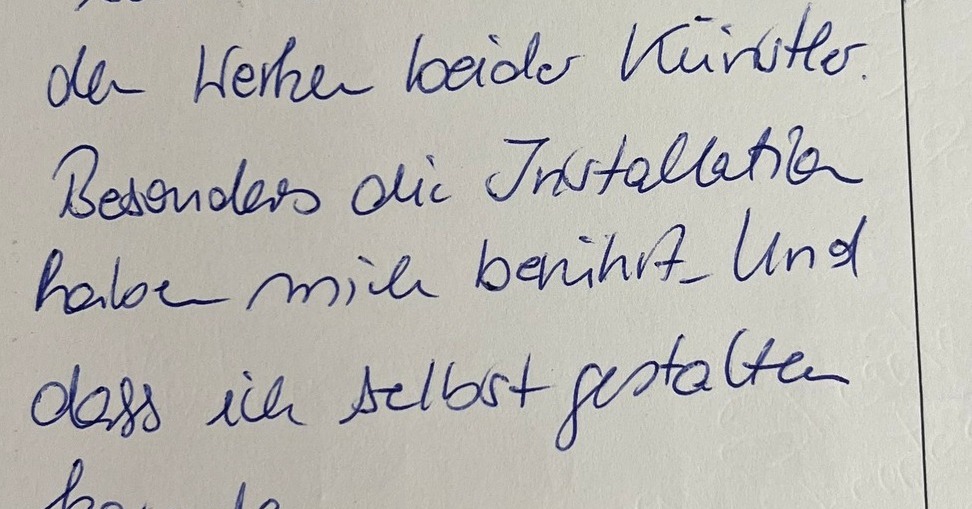 den Werken beider Künstler.
Besonders die Installation
haben mich berührt. Und
dass ich selbst gestalten